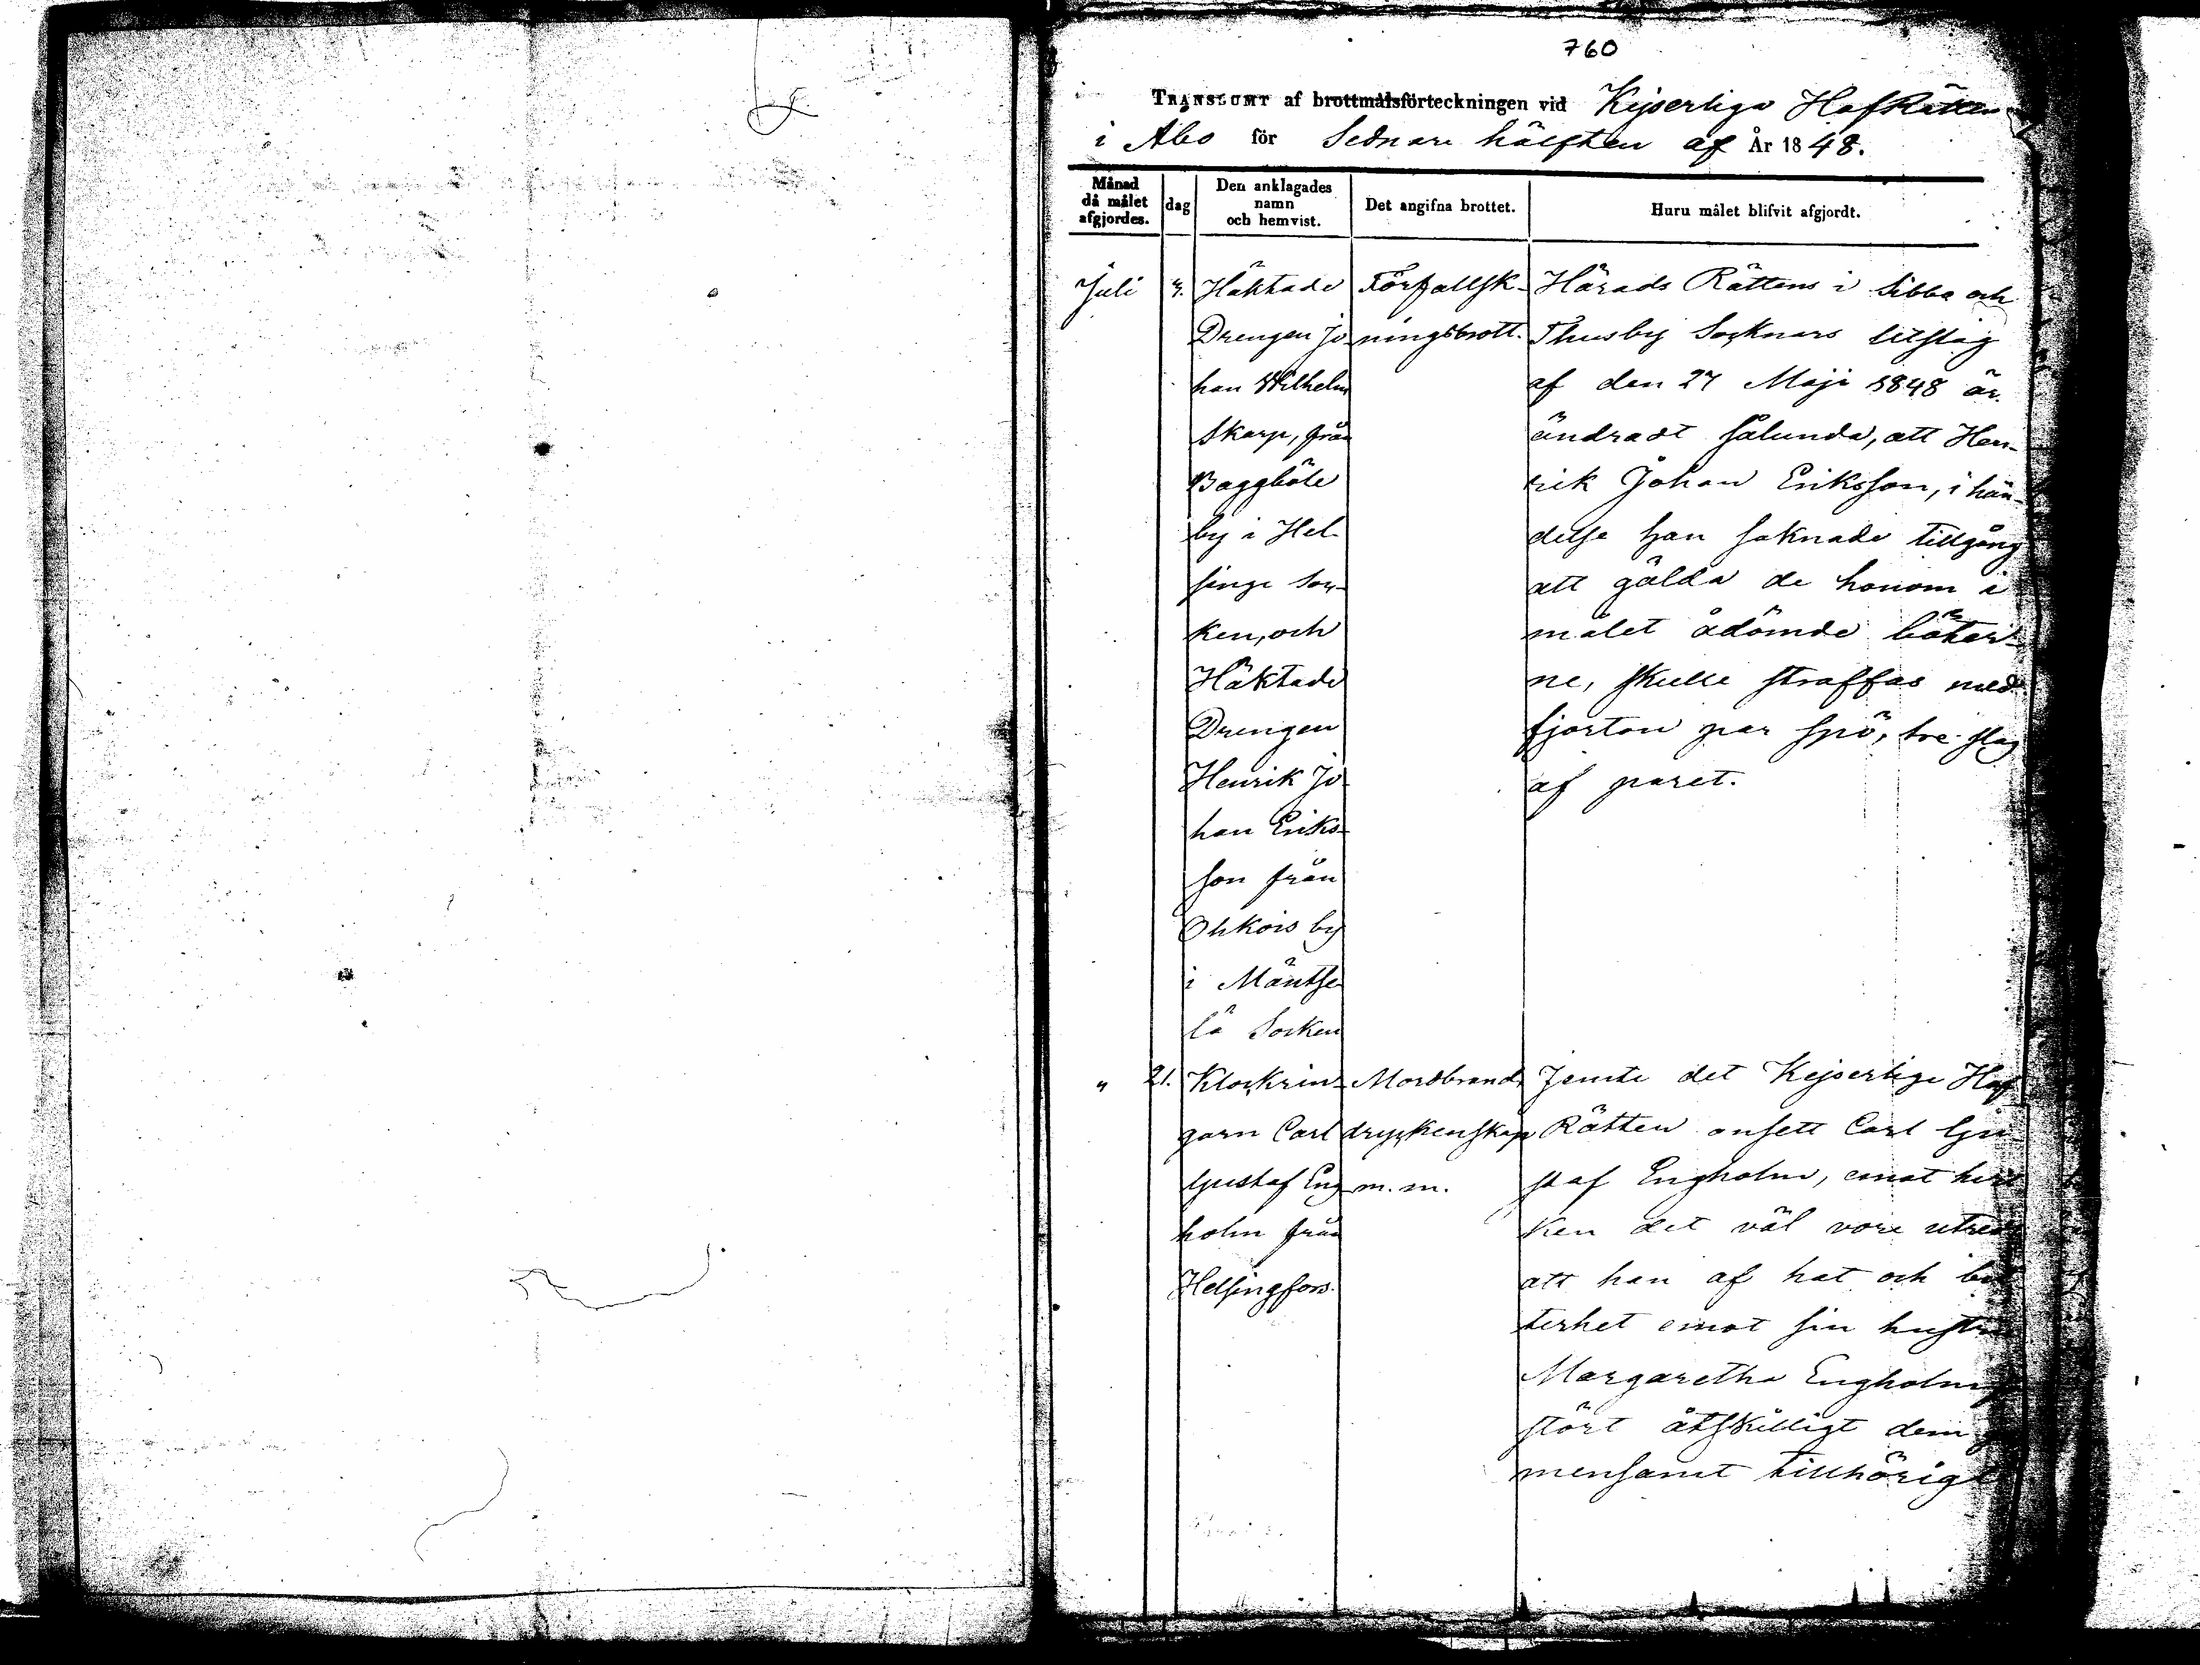 760
TRANSSUMT af brottmålsförteckningen vid Kejserliga HofRätten
i Åbo för Sednare hälften af År 1848.
Månad
då målet
afgjordes.
dag
Den anklagades
namn
och hemvist.
Det angifna brottet.
Huru målet blifvit afgjordt.
Juli
Häktade
Drengen Jo-
han Wilhelm
Skarp, från
Baggböle
by i Hel-
singe Soc-
ken, och
Häktade
Drengen
Henrik Jo-
han Eriks-
son från
Ohkois by
i Mäntse-
lä Socken
Förfallsk-
ningsbrott.
Härads Rättens i Sibbo och
Thusby Socknars utslag
af den 27 Maji 1848 är
ändradt sålunda, att Hen-
rik Johan Eriksson, i hän-
delse han saknade tillgång
att gälda de honom i
målet ådömde böter-
ne, skulle straffas med
fjorton par spö, tre slag
af paret.
" 21.
Klockrin-
garn Carl
Gustaf Eng-
holm från
Helsingfors.
Mordbrand,
dryckenskap
m. m.
Jemte det Kejserliga Hof
Rätten ansett Carl Gu-
staf Engholm, emot hvil
ken det väl vore utredt
att han af hat och bit
terhet emot sin hustru
Margaretha Engholm
stört åtskilligt dem
mensamt tillhörigt